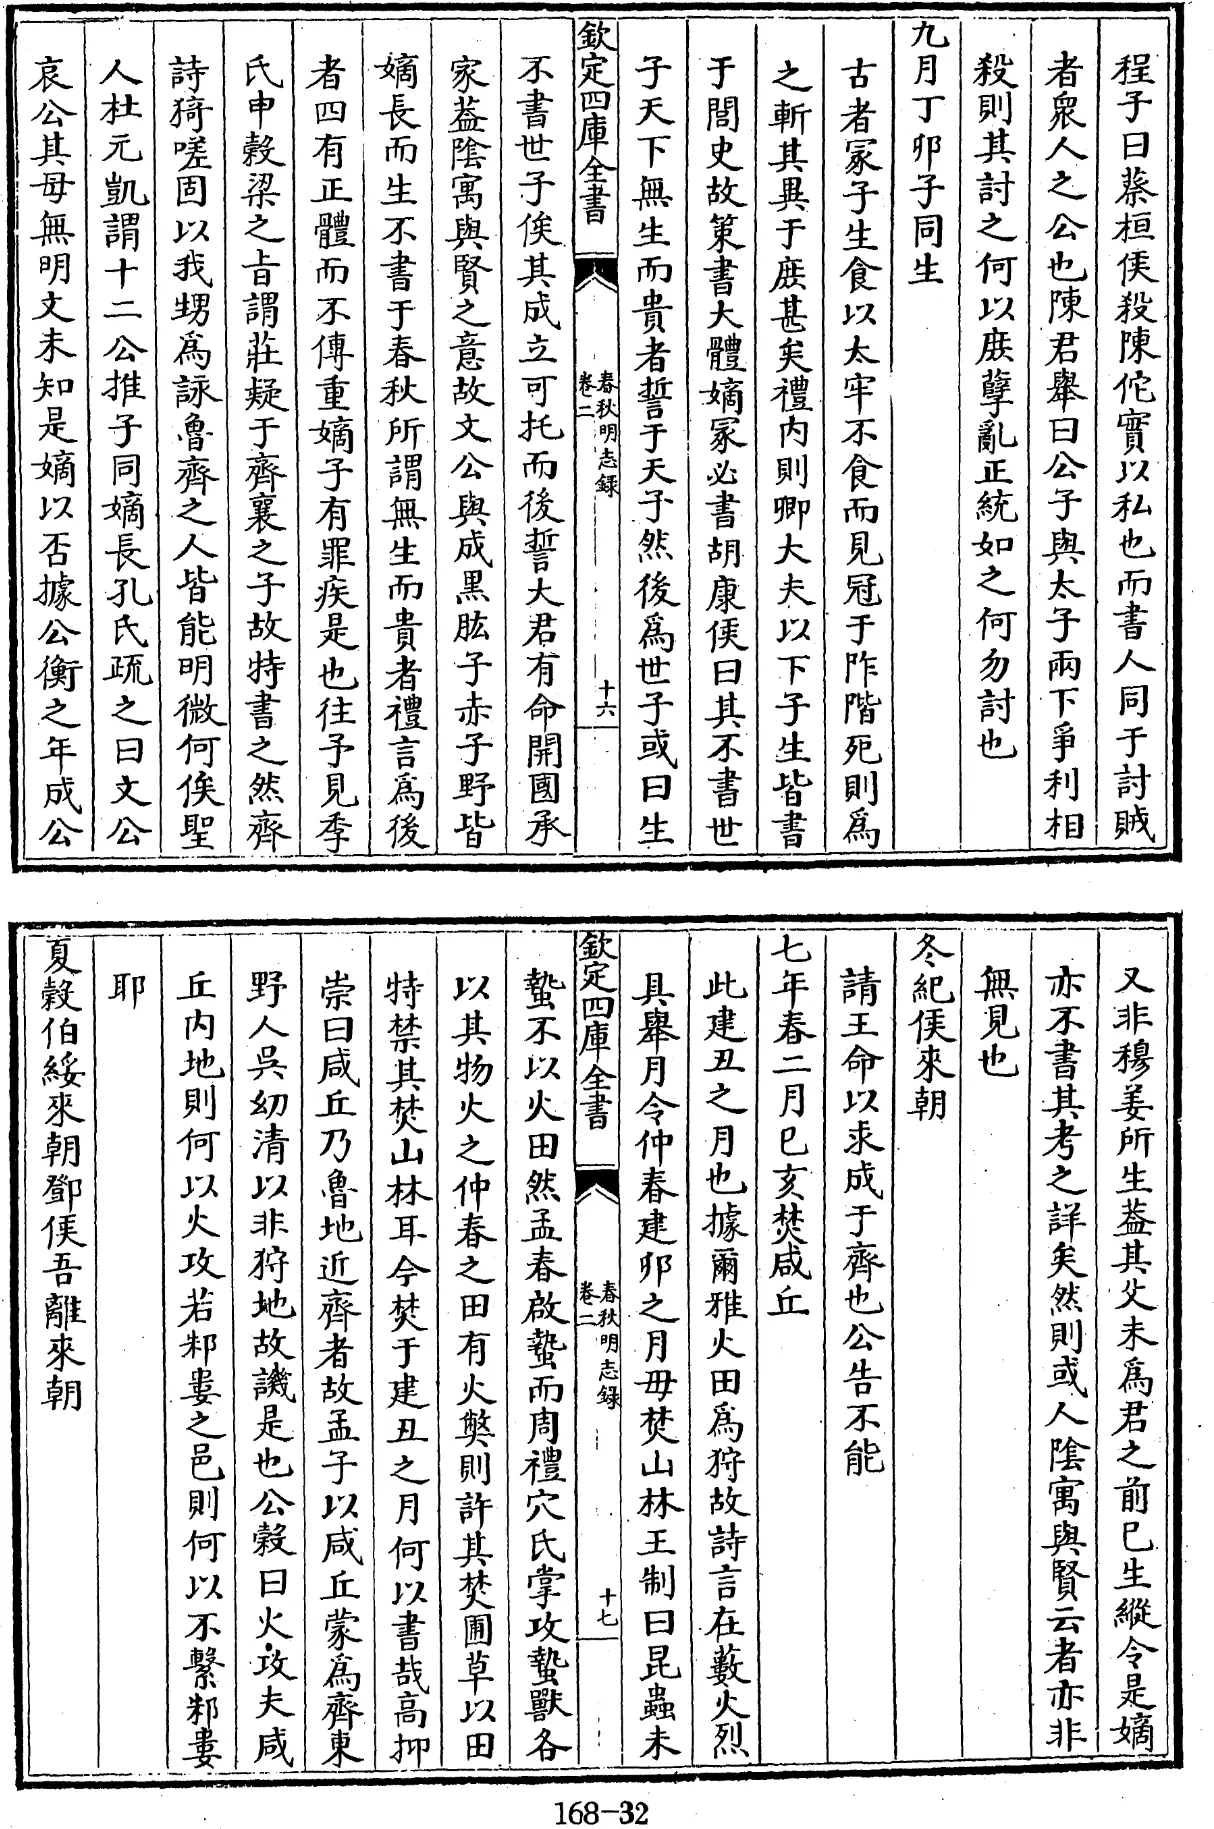 程子曰蔡桓侯殺陳佗實以私也而書人同于討賊
者衆人之公也陳君舉曰公子與太子兩下爭利相
殺則其討之何以庻孽亂正統如之何勿討也
九月丁卯子同生
古者冡子生食以太牢不食而見冠于阼階死則爲
之斬其異于庻甚矣禮内則卿大夫以下子生皆書
于閭史故策書大體嫡冡必書胡康侯曰其不書世
子天下無生而貴者誓于天子然後爲世子或曰生
欽定四庫全書
春秋明志録
卷二
十六
不書世子俟其成立可托而後誓大君有命開國承
家葢隂寓與賢之意故文公與成黒肱子赤子野皆
嫡長而生不書于春秋所謂無生而貴者禮言爲後
者四有正體而不傳重嫡子有罪疾是也往予見季
氏申穀梁之㫖謂莊疑于齊襄之子故特書之然齊
詩猗嗟固以我甥爲詠魯齊之人皆能明微何俟聖
人杜元凱謂十二公推子同嫡長孔氏疏之曰文公
哀公其母無明文未知是嫡以否據公衡之年成公
又非穆姜所生葢其父未爲君之前已生縱令是嫡
亦不書其考之詳矣然則或人隂寓與賢云者亦非
無見也
冬紀侯來朝
請王命以求成于齊也公告不能
七年春二月已亥焚咸丘
此建丑之月也據爾雅火田爲狩故詩言在藪火烈
具舉月令仲春建卯之月毋焚山林王制曰昆蟲未
欽定四庫全書
春秋明志録
卷二
十七
蟄不以火田然孟春啟蟄而周禮穴氏掌攻蟄獸各
以其物火之仲春之田有火獘則許其焚圃草以田
特禁其焚山林耳今焚于建丑之月何以書哉高抑
崇曰咸丘乃魯地近齊者故孟子以咸丘蒙爲齊東
野人吳幼清以非狩地故譏是也公穀曰火攻夫咸
丘内地則何以火攻若邾婁之邑則何以不繫邾婁
耶
夏穀伯綏來朝鄧侯吾離來朝
168-32